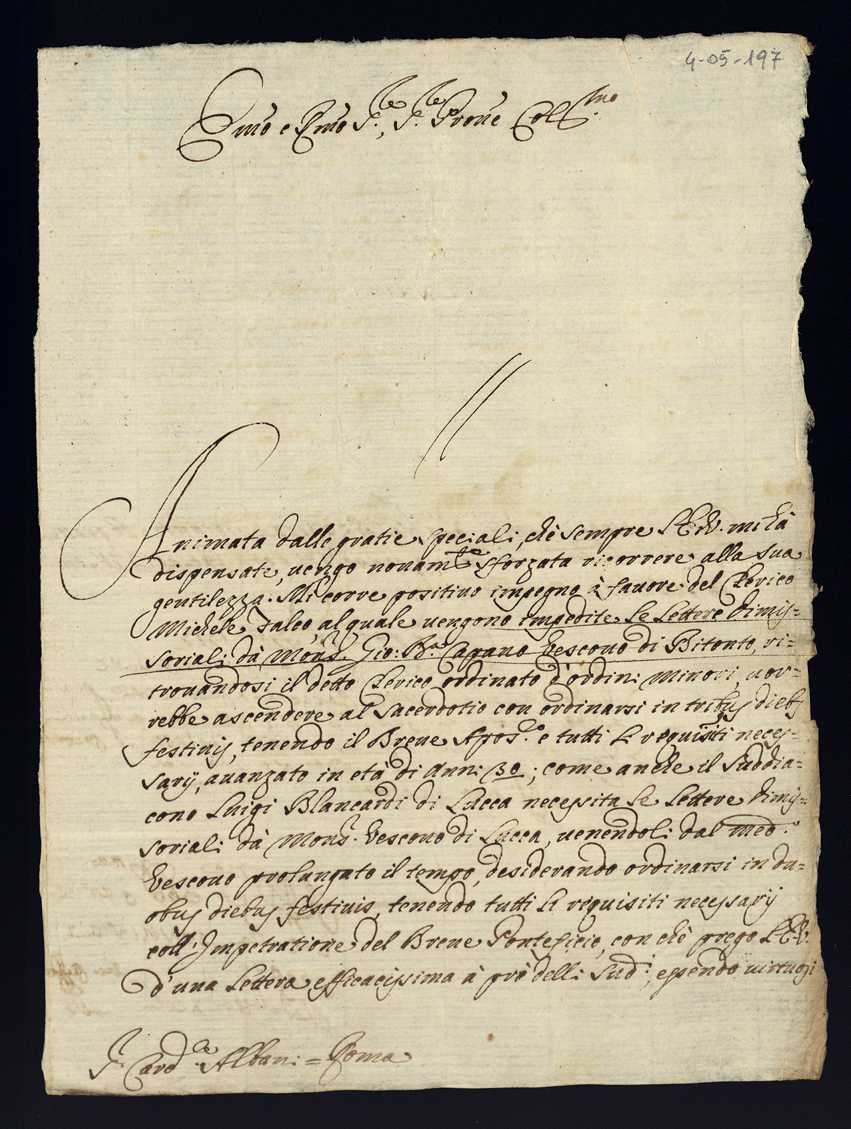 4-05-197
Emo e Rmo Sre, Sre Prone Coll.mo
Animata dalle gratie speciali, chè sempre l'E.V. mi hà
dispensate, vengo novam.te sforzata ricorrere alla sua
gentilezza. Mi corre positivo impegno à favore del Clerico
Michele Falco al quale vengono impedite le lettere dimis=
soriali dà Mons.r Gio: Bta. Cagano Vescovo di Bitonto, ri=
trovandosi il detto Clerico ordinato d'ordini minori, vor=
rebbe ascendere al Sacerdotio con ordinarsi in tribus diebus
festivis, tenendo il Breve Apos.o e tutti li requisiti neces=
sarij, avanzato in età di Anni 30; come anche il Suddia=
cono Luigi Blancardi di Lucca necessita le lettere dimis=
soriali dà Mons.r Vescovo di Lucca, venendoli dal med.o
Vescovo prolungato il tempo, desiderando ordinarsi in du=
obus diebus festivis, tenendo tutti li requisiti necessarij
coll'Impetratione del Breve Pontificio, con chè prego l'E.V.
d'una lettera efficacissima à prò delli Sud.i, essendo virtuosi
S. Card.le Albani = Roma